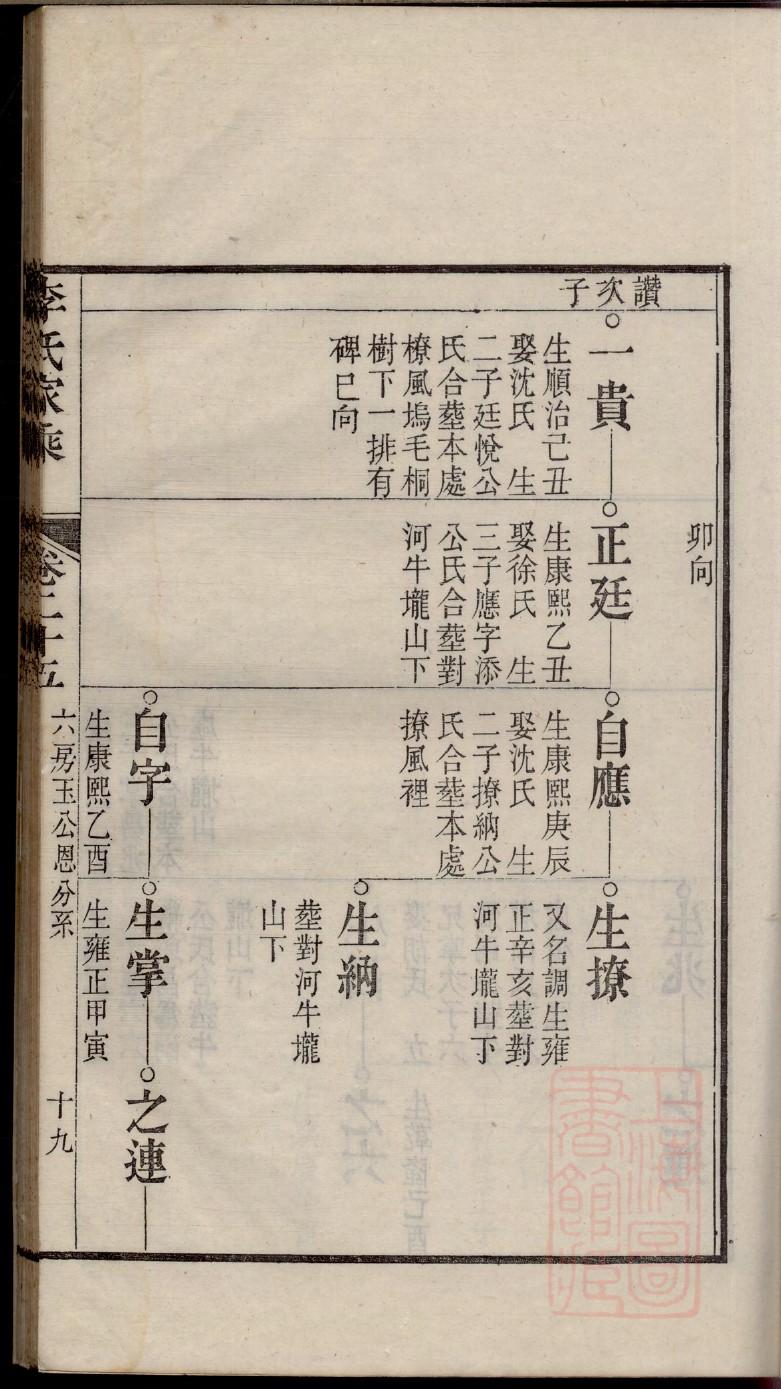 卯向
讚次子
一貴
生順治己丑
娶沈氏 生
二子廷悅公
氏合塟本處
橑風塢毛桐
樹下一排有
碑巳向
正廷
生康熙乙丑
娶徐氏 生
三子應字添
公氏合塟對
河牛壠山下
自應
生康熙庚辰
娶沈氏 生
二子撩納公
氏合塟本處
撩風裡
生撩
又名調生雍
正辛亥塟對
河牛壠山下
生納
塟對河牛壠
山下
自字
生康熙乙酉
生掌
生雍正甲寅
之連
李氏家乘
卷二十五
六房玉公恩分系
十九
上海圖書館藏